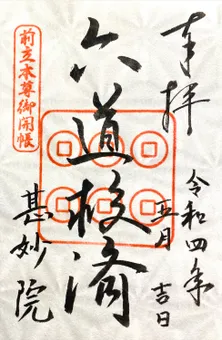 奉拝
令和四年
五月
吉日
六道救済
前立本尊御開帳
甚妙院